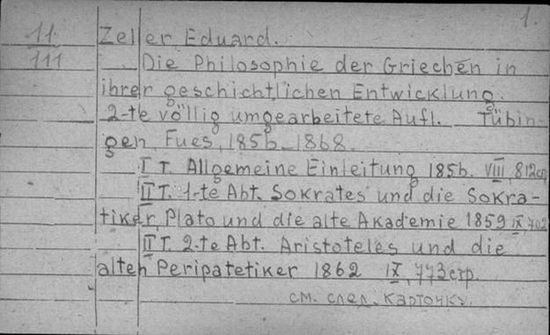 1.
11 Zeller Eduard.
111 Die Philosophie der Griechen in
ihrer geschichtlichen Entwicklung.
2-te völlig umgearbeitete Aufl. Tübin-
gen, Fues, 1856-1868.
I T. Allgemeine Einleitung 1856. VIII 812ср
II T. 1-te Abt. Sokrates und die Sokra-
tiker, Plato und die alte Akademie 1859 IX,
II T. 2-te Abt. Aristoteles und die
alten Peripatetiker 1862 IX, 773стр.
см. след. карточку.